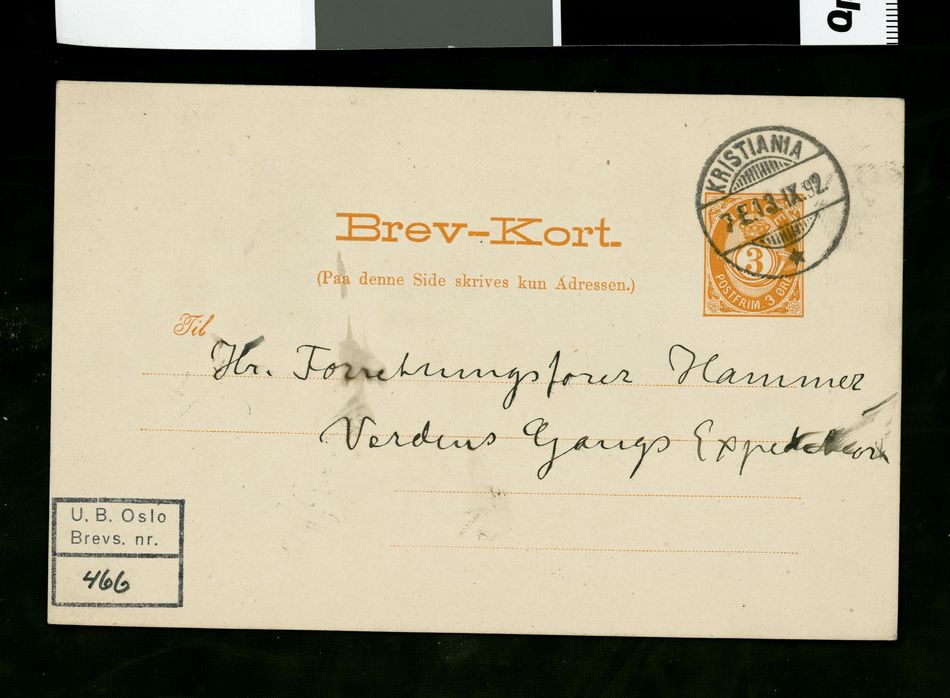 KRISTIANIA
7-E 13 IX 92
3
POSTFRIM. 3 ØRE
Brev-Kort.
(Paa denne Side skrives kun Adressen.)
Til
Hr. Forretningsfører Hammer
Verdens Gangs Expedition
U. B. Oslo
Brevs. nr.
466